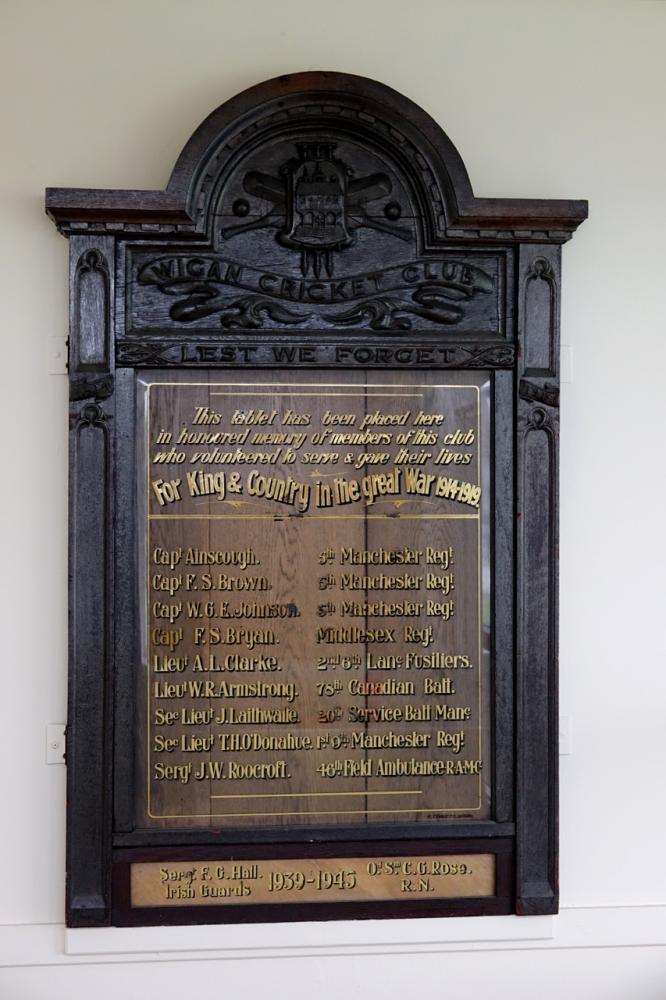 WIGAN CRICKET CLUB
LEST WE FORGET
This tablet has been placed here
in honoured memory of members of this club
who volunteered to serve & gave their lives
For King & Country in the great War 1914-1919.
Capt Ainscough. 5th Manchester Regt
Capt F. S. Brown. 5th Manchester Regt
Capt W. G. E. Johnson. 5th Manchester Regt
Capt F. S Bryan. Middlesex Regt
Lieut A. L. Clarke. 2nd 6th Lanc Fusiliers.
Lieut W. R. Armstrong. 78th Canadian Batt.
Sec Lieut J. Laithwaite. 20th Service Batt Manc
Sec Lieut T. H. O'Donahue. 1st 9th Manchester Regt
Sergt J. W. Roocroft. 46th Field Ambulance R.A.M.C
Sergt. F. G. Hall. 1939-1945 Od Sea. C. G. Rose.
Irish Guards R.N.